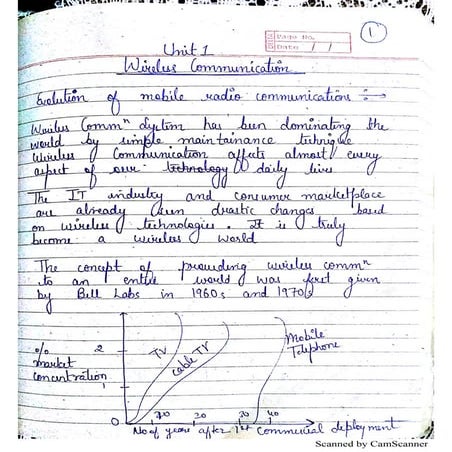 Page No.
Date / /
1
Unit 1
Wireless Communication
Evolution of mobile radio communications :→
Wireless Commⁿ System has been dominating the
world by simple maintainance technique
Wireless Communication affects almost every
aspect of our technology daily lives
The IT industry and consumer marketplace
are already seen drastic changes based
on wireless technologies. It is truly
become a wireless world
The concept of providing wireless commⁿ
to an entire world was first given
by Bell Labs in 1960s and 1970s
%
market
concentration
2
1
0
TV
cable TV
Mobile
Telephone
10 20 30 40
No of years after 1st Commercial deployment
Scanned by CamScanner